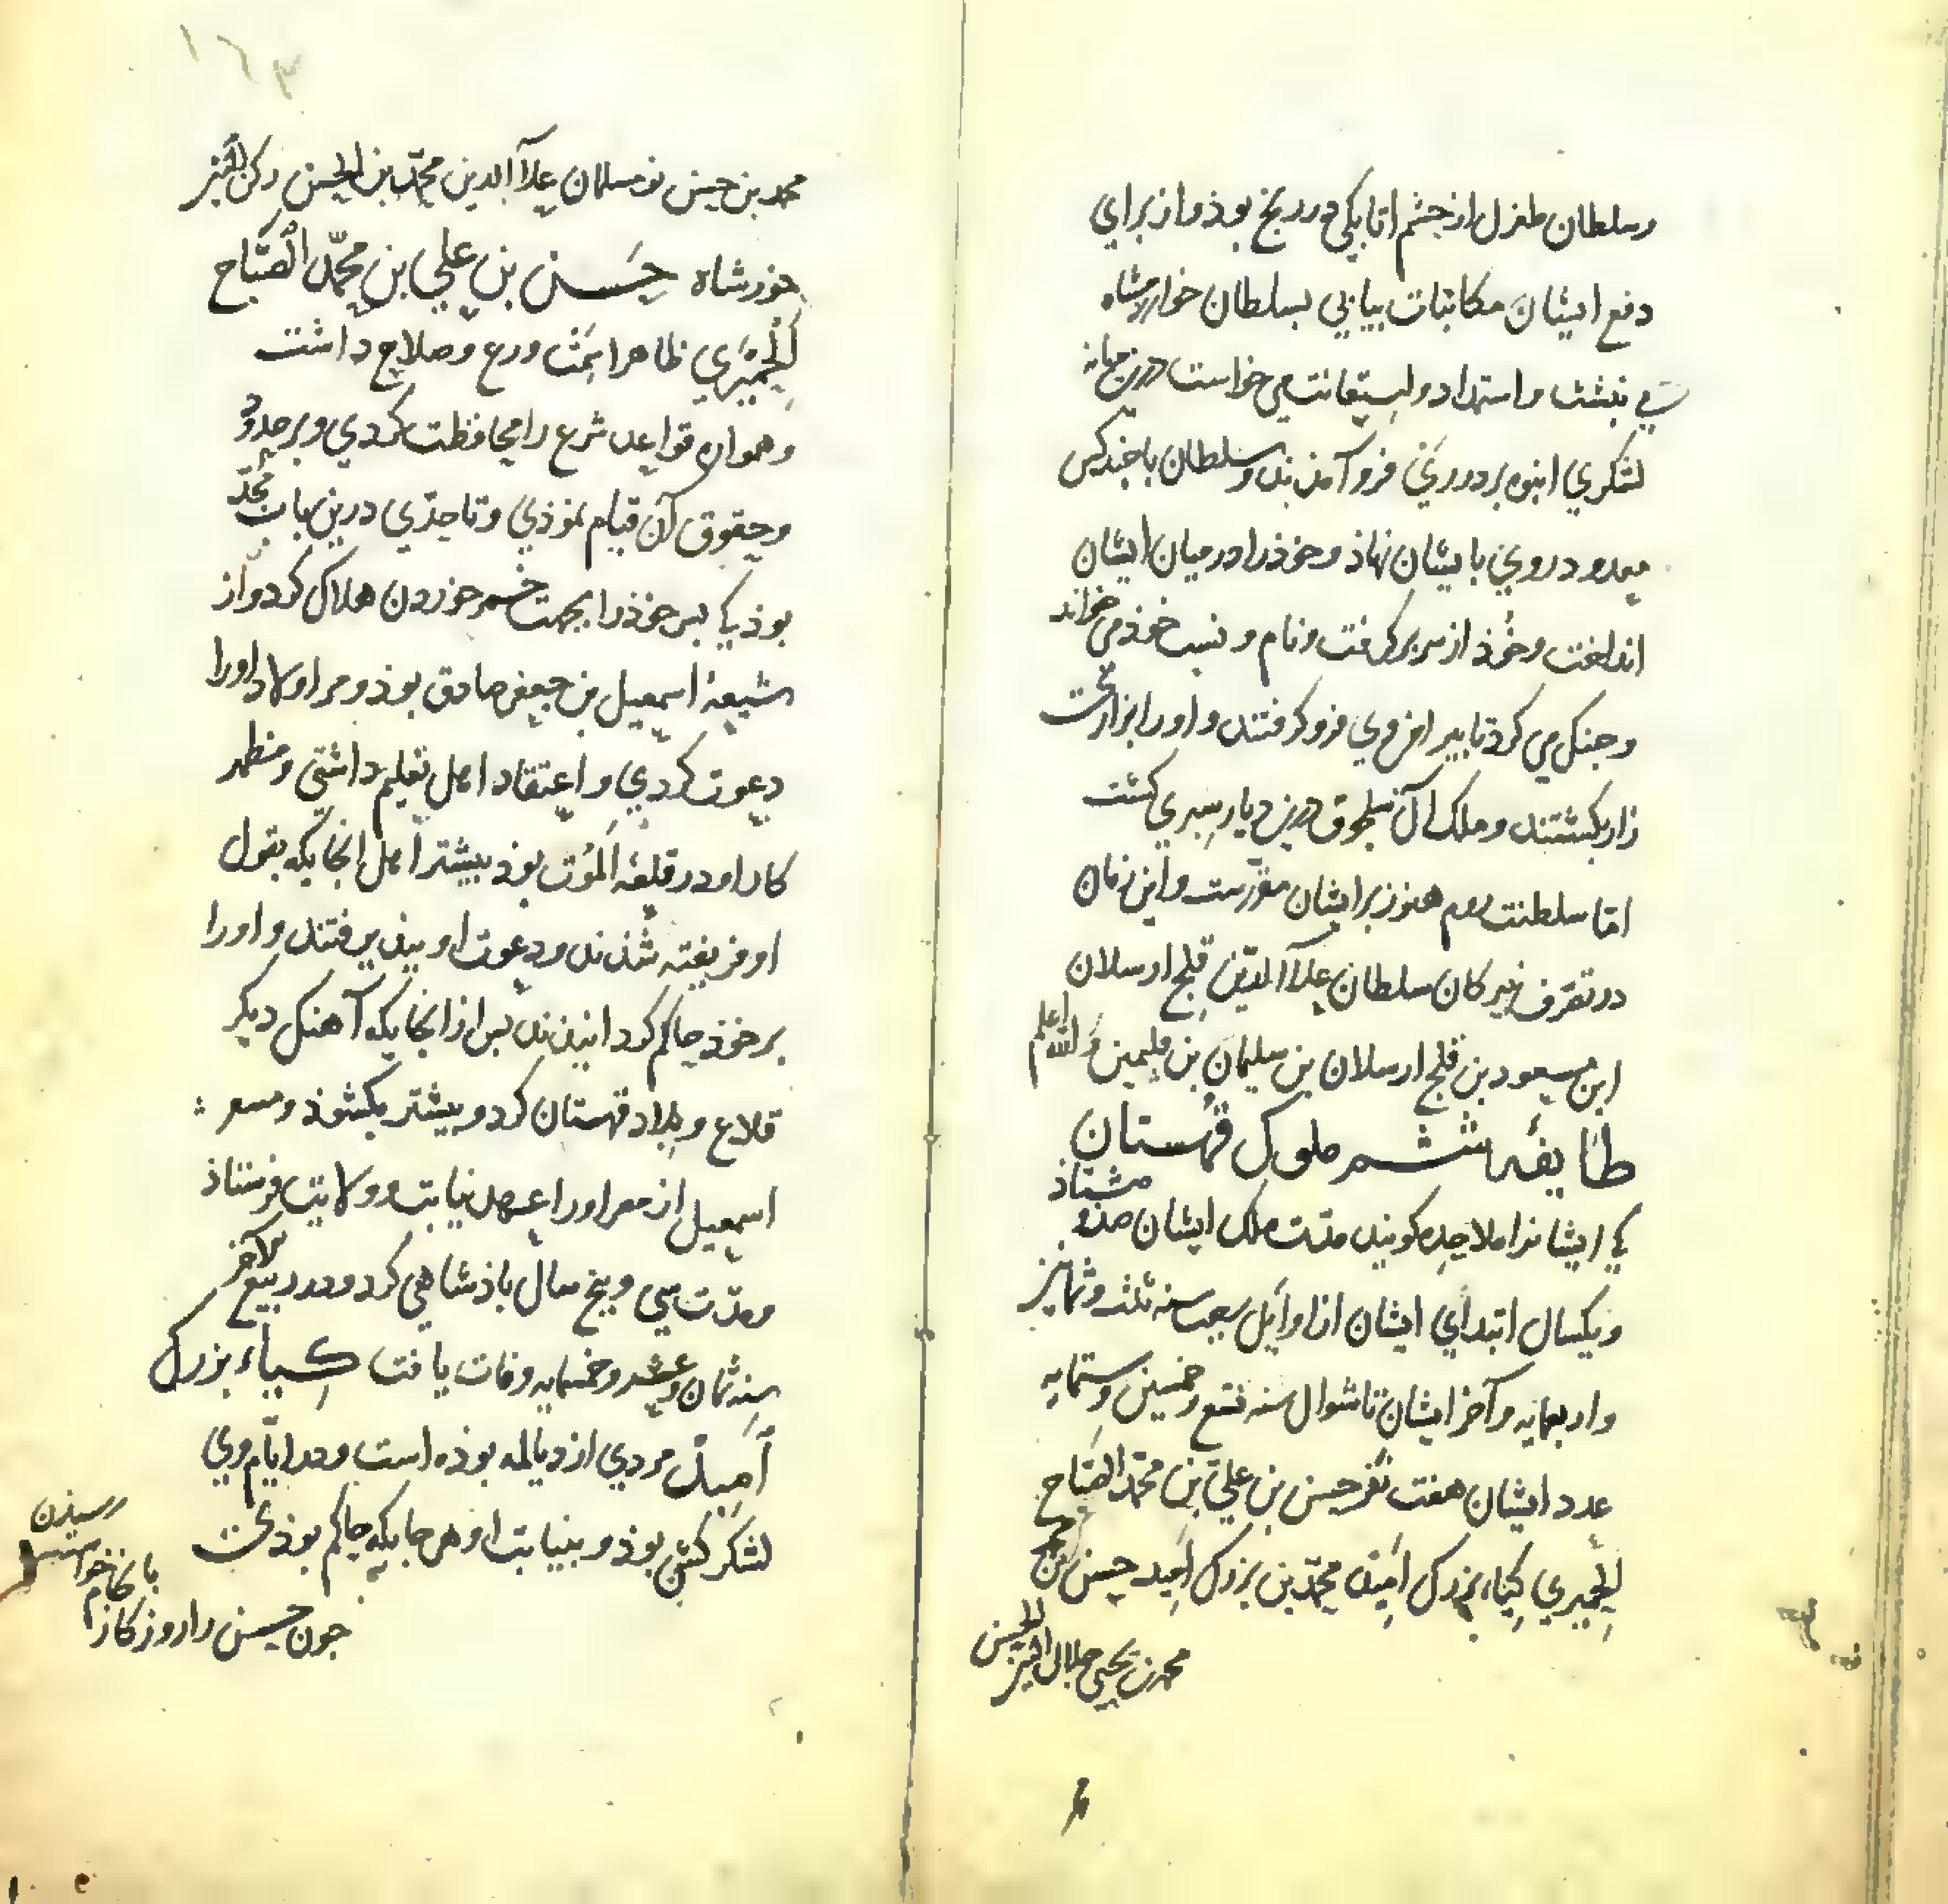 وسلطان طغرل از چشم اتابکی در رنج بوذ و از برای
دفع ایشان مکاتبات بیابی بسلطان خوارزمشاه
می نبشت و استمداد و استعانت می خواست درین میانه
لشکری انبوه بر در ری فرو آمذند و سلطان با جند کس
روی بایشان نهاذ و خوذ را در میان ایشان
انداخت و خوذ از سر بر گرفت و نام و نسب خوذ می خواند
و جنک می کرد تا بیر امن وی فرو کرفتند و او را بزاری
زار بکشتند و ملک آل سلجوق درین دیار سبری کشت
اما سلطنت روم هنوز بر ایشان مقررست و این زمان
در تصرف نبیر کان سلطان علاآ الدین قلج ارسلان
ابن مسعود بن قلج ارسلان بن سلیمان بن والله اعلم
طایفه ششم ملوک قهستان
که ایشانرا ملاحده کویند مدت ملک ایشان صذ و هشتاذ
و یکسال ابتدآی ایشان از اوایل رجب سنه ثلث و ثمانین
و اربعمایه و آخر ایشان تا شوال سنه تسع و خمسین و ستمایه
عدد ایشان هفت نفر حسن بن علی بن محمد الصباح
الحمیری کیاء بزرک امید محمد بن بزرک امید حسن بن
محمد بن یحیی جلال الدین الحسن
۱۶۳
محمد بن حسن نو مسلمان علاآ الدین محمد بن الحسن رکن الدین
خورشاه حسن بن علی بن محمد الصباح
الحمیری ظاهرا سمت ورع و صلاح داشت
و همواره قواعد شرع را محافظت کردی و بر حدود
و حقوق آن قیام نموذی و تا حدی درین باب مجد
بوذ که بسر خوذ را بجهت خمر خوردن هلاک کرد و از
شیعه اسمعیل بن جعفر صادق بوذ و مر اولاد او را
دعوت کردی و اعتقاد اهل تعلیم داشتی و مظهر
کار او در قلعه الموت بوذ بیشتر اهل انجایکه بقول
او فریفته شذند و دعوت او ببذیرفتند و او را
بر خوذ حاکم کردانیذند بس از انجایکه آهنک دیکر
قلاع و بلاد قهستان کرد و بیشتر بکشوذ و
اسمعیل از مصر او را عهد نیابت و ولایت فرستاذ
و مدت سی و بنج سال باذشاهی کرد و در ربیع الآخر
سنه ثمان و عشر و خمسمایه وفات یافت کیاء بزرک
امید مردی از دیالمه بوذه است و در ایام وی
لشکر کش بوذ و بنیابت او هر جایکه حاکم بوذی
جون حسن را روزکار بانجام خواست رسیذن